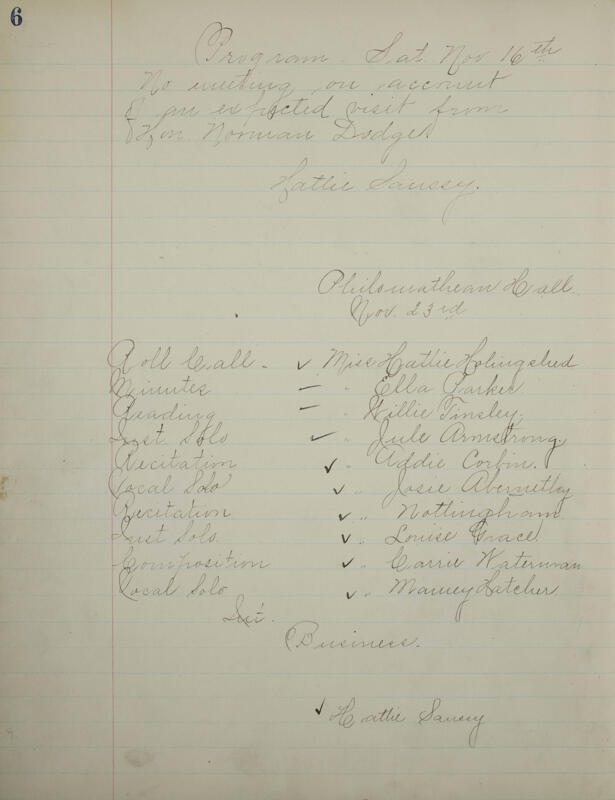 6
Program. Sat Nov 16th
No meeting on account
of an expected visit from
Hon. Norman Dodge.
Hattie Saussy.
Philomathean Hall.
Nov. 23rd
Roll Call. ✓ Miss Hattie Holingshed
Minutes — " Ella Parker
Reading — " Willie Tinsley.
Inst Solo ✓ " Jule Armstrong
Recitation ✓ " Addie Corbin.
Vocal Solo ✓ " Josie Abernethy
Recitation ✓ " Nottingham
Inst Solo. ✓ " Louise Grace
Composition ✓ " Carrie Waterman
Vocal Solo ✓ " Mamey Hatcher
Int.
Business.
✓ Hattie Saussy